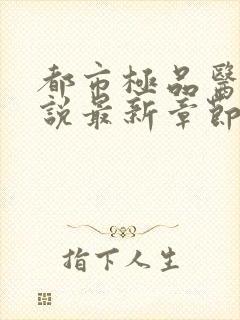 都市極品醫
說最新章節
指下人生